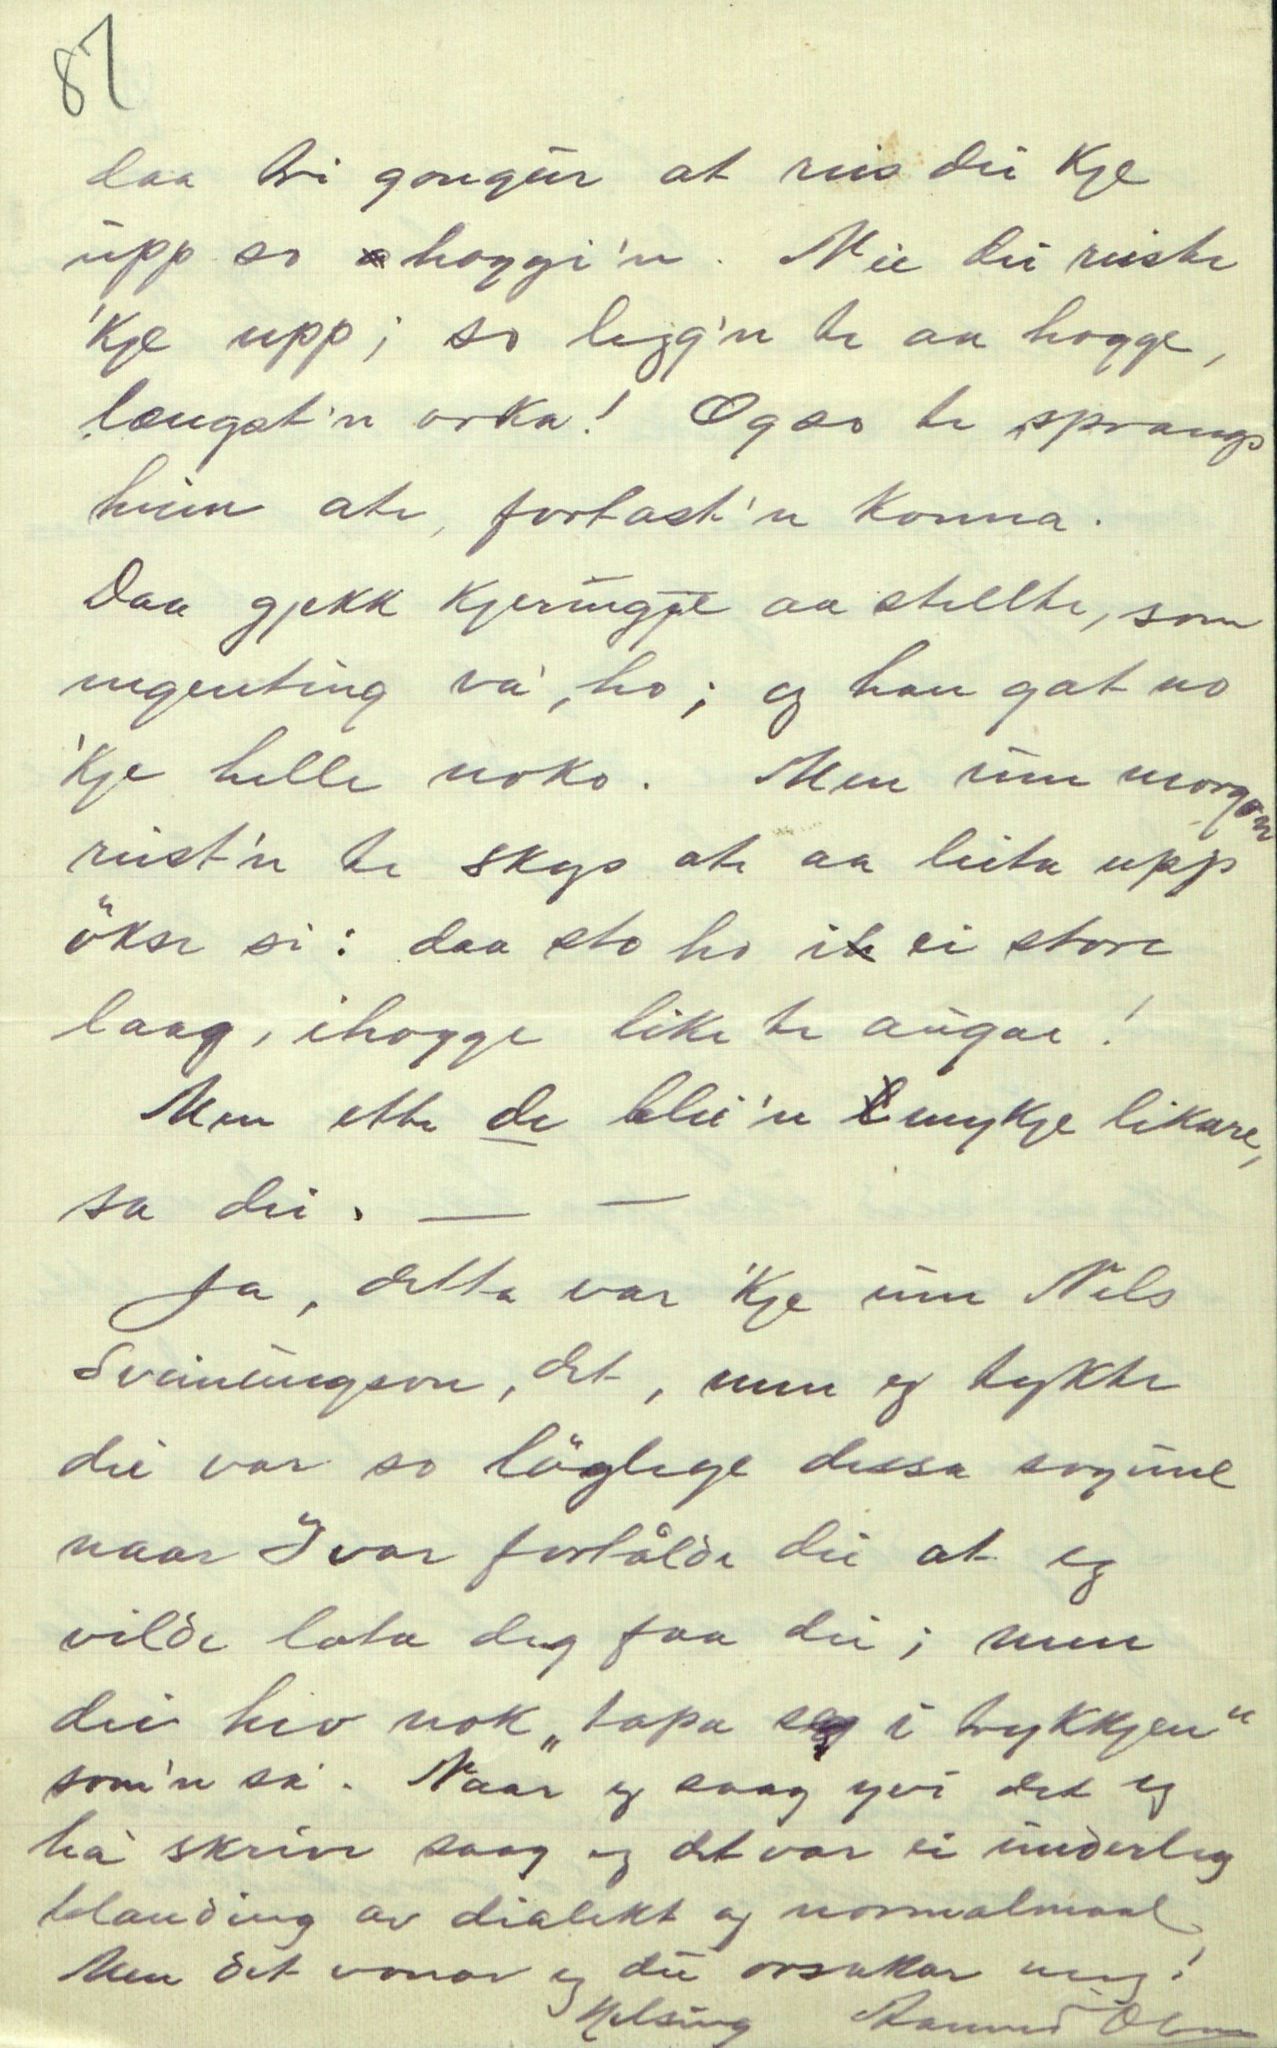 87
daa tri gongūr at riis dū kje
ūpp so hoggi'n. Nei dū riiste
'kje upp; so legg'n te aa hogge,
længst'n orka! Ogso te sprangs
heim ate, fortast'n konna.
Daa gjekk kjeringje aa stellte, som
ingenting va', ho; og han gat no
'kje helle noko. Men ūm morgon
reist'n te skogs ate aa leita upp
ökse si: daa sto ho i ei store
laag, ihogge like te augae!
Men ette de blei'n mykje likare,
sa dei. — —
Ja, detta var 'kje ūm Nils
Sveinūngson, det, men eg tykte
dei var so löglege dessa sogūne
naar Ivar fortålde dei at eg
vilde lata deg faa dei; men
dei hev nok „tapa seg i trykkjen"
som'n sa'. Naar eg saag yvi det eg
ha' skrive saag eg det var ei ūnderleg
blanding av dialekt og normalmaal.
Men det vonar eg dū orsakar meg!
Helsing